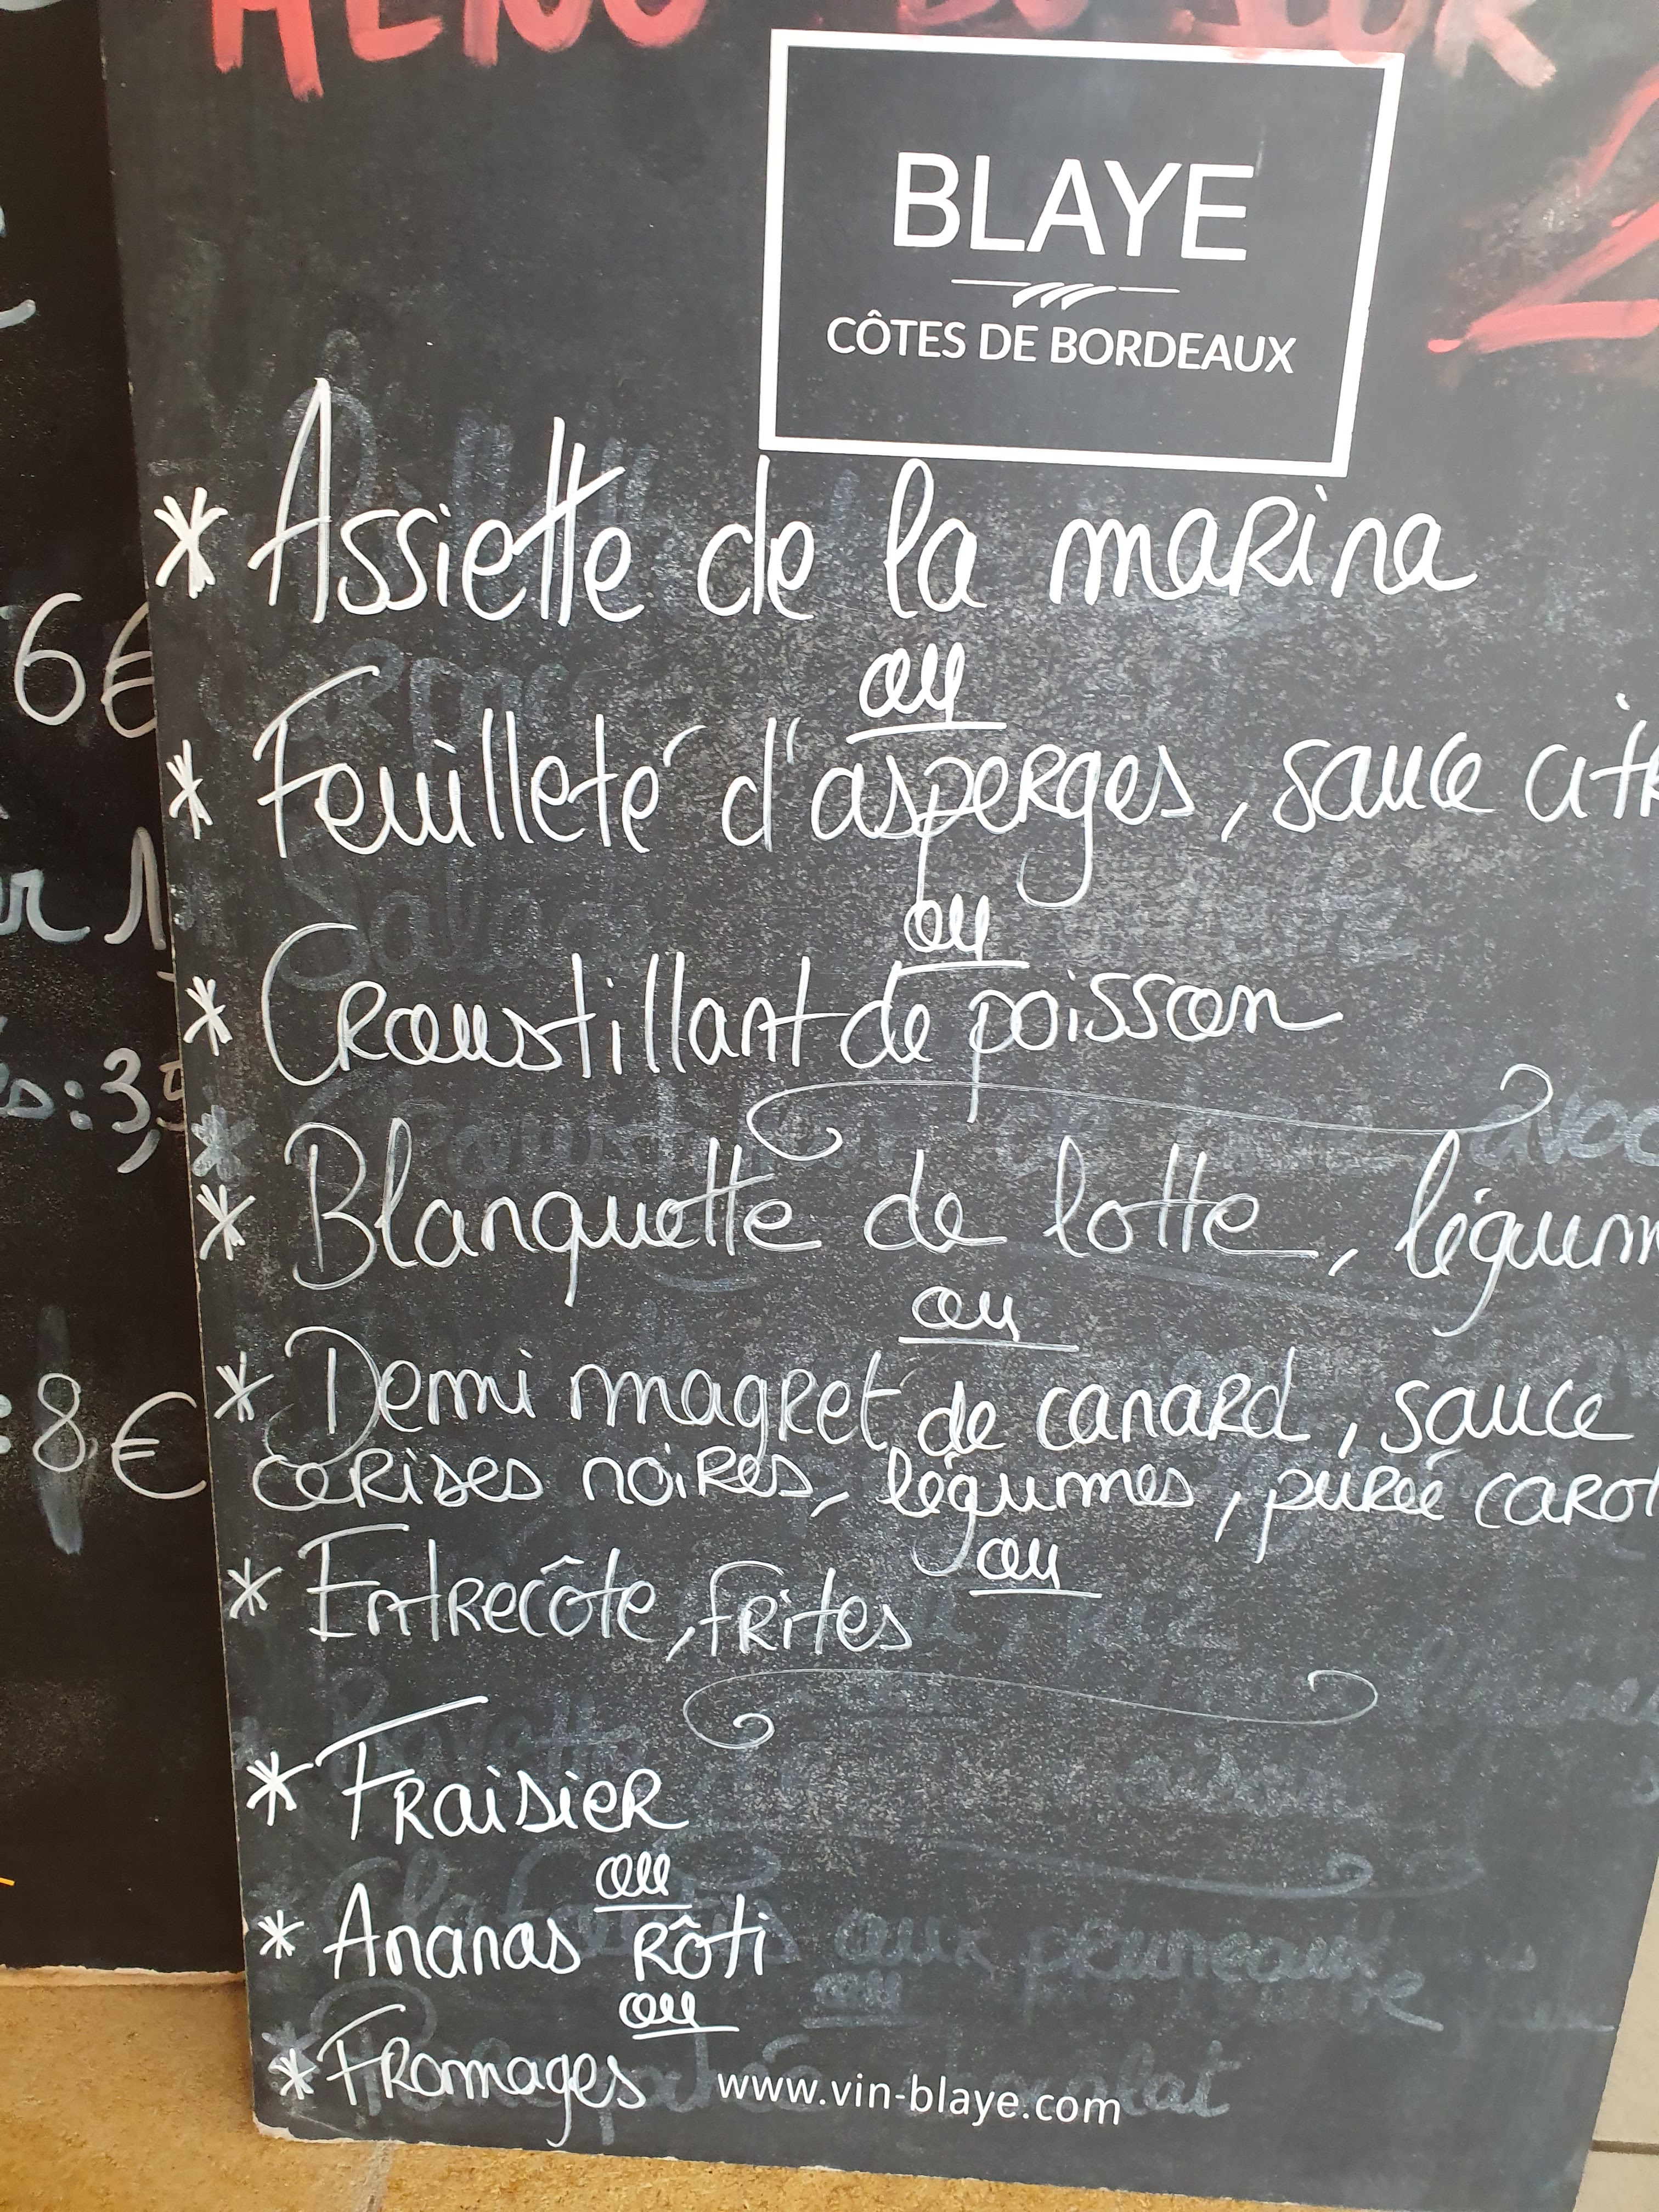 MENU DU JOUR
BLAYE
CÔTES DE BORDEAUX
* Assiette de la marina
ou
* Feuilleté d'asperges, sauce citr
ou
* Croustillant de poisson
* Blanquette de lotte, légum
ou
* Demi magret de canard, sauce
cerises noires, légumes, purée carot
ou
* Entrecôte, frites
* Fraisier
ou
* Ananas rôti
ou
* Fromages
www.vin-blaye.com
6€
r 1
s: 3,5
: 8€